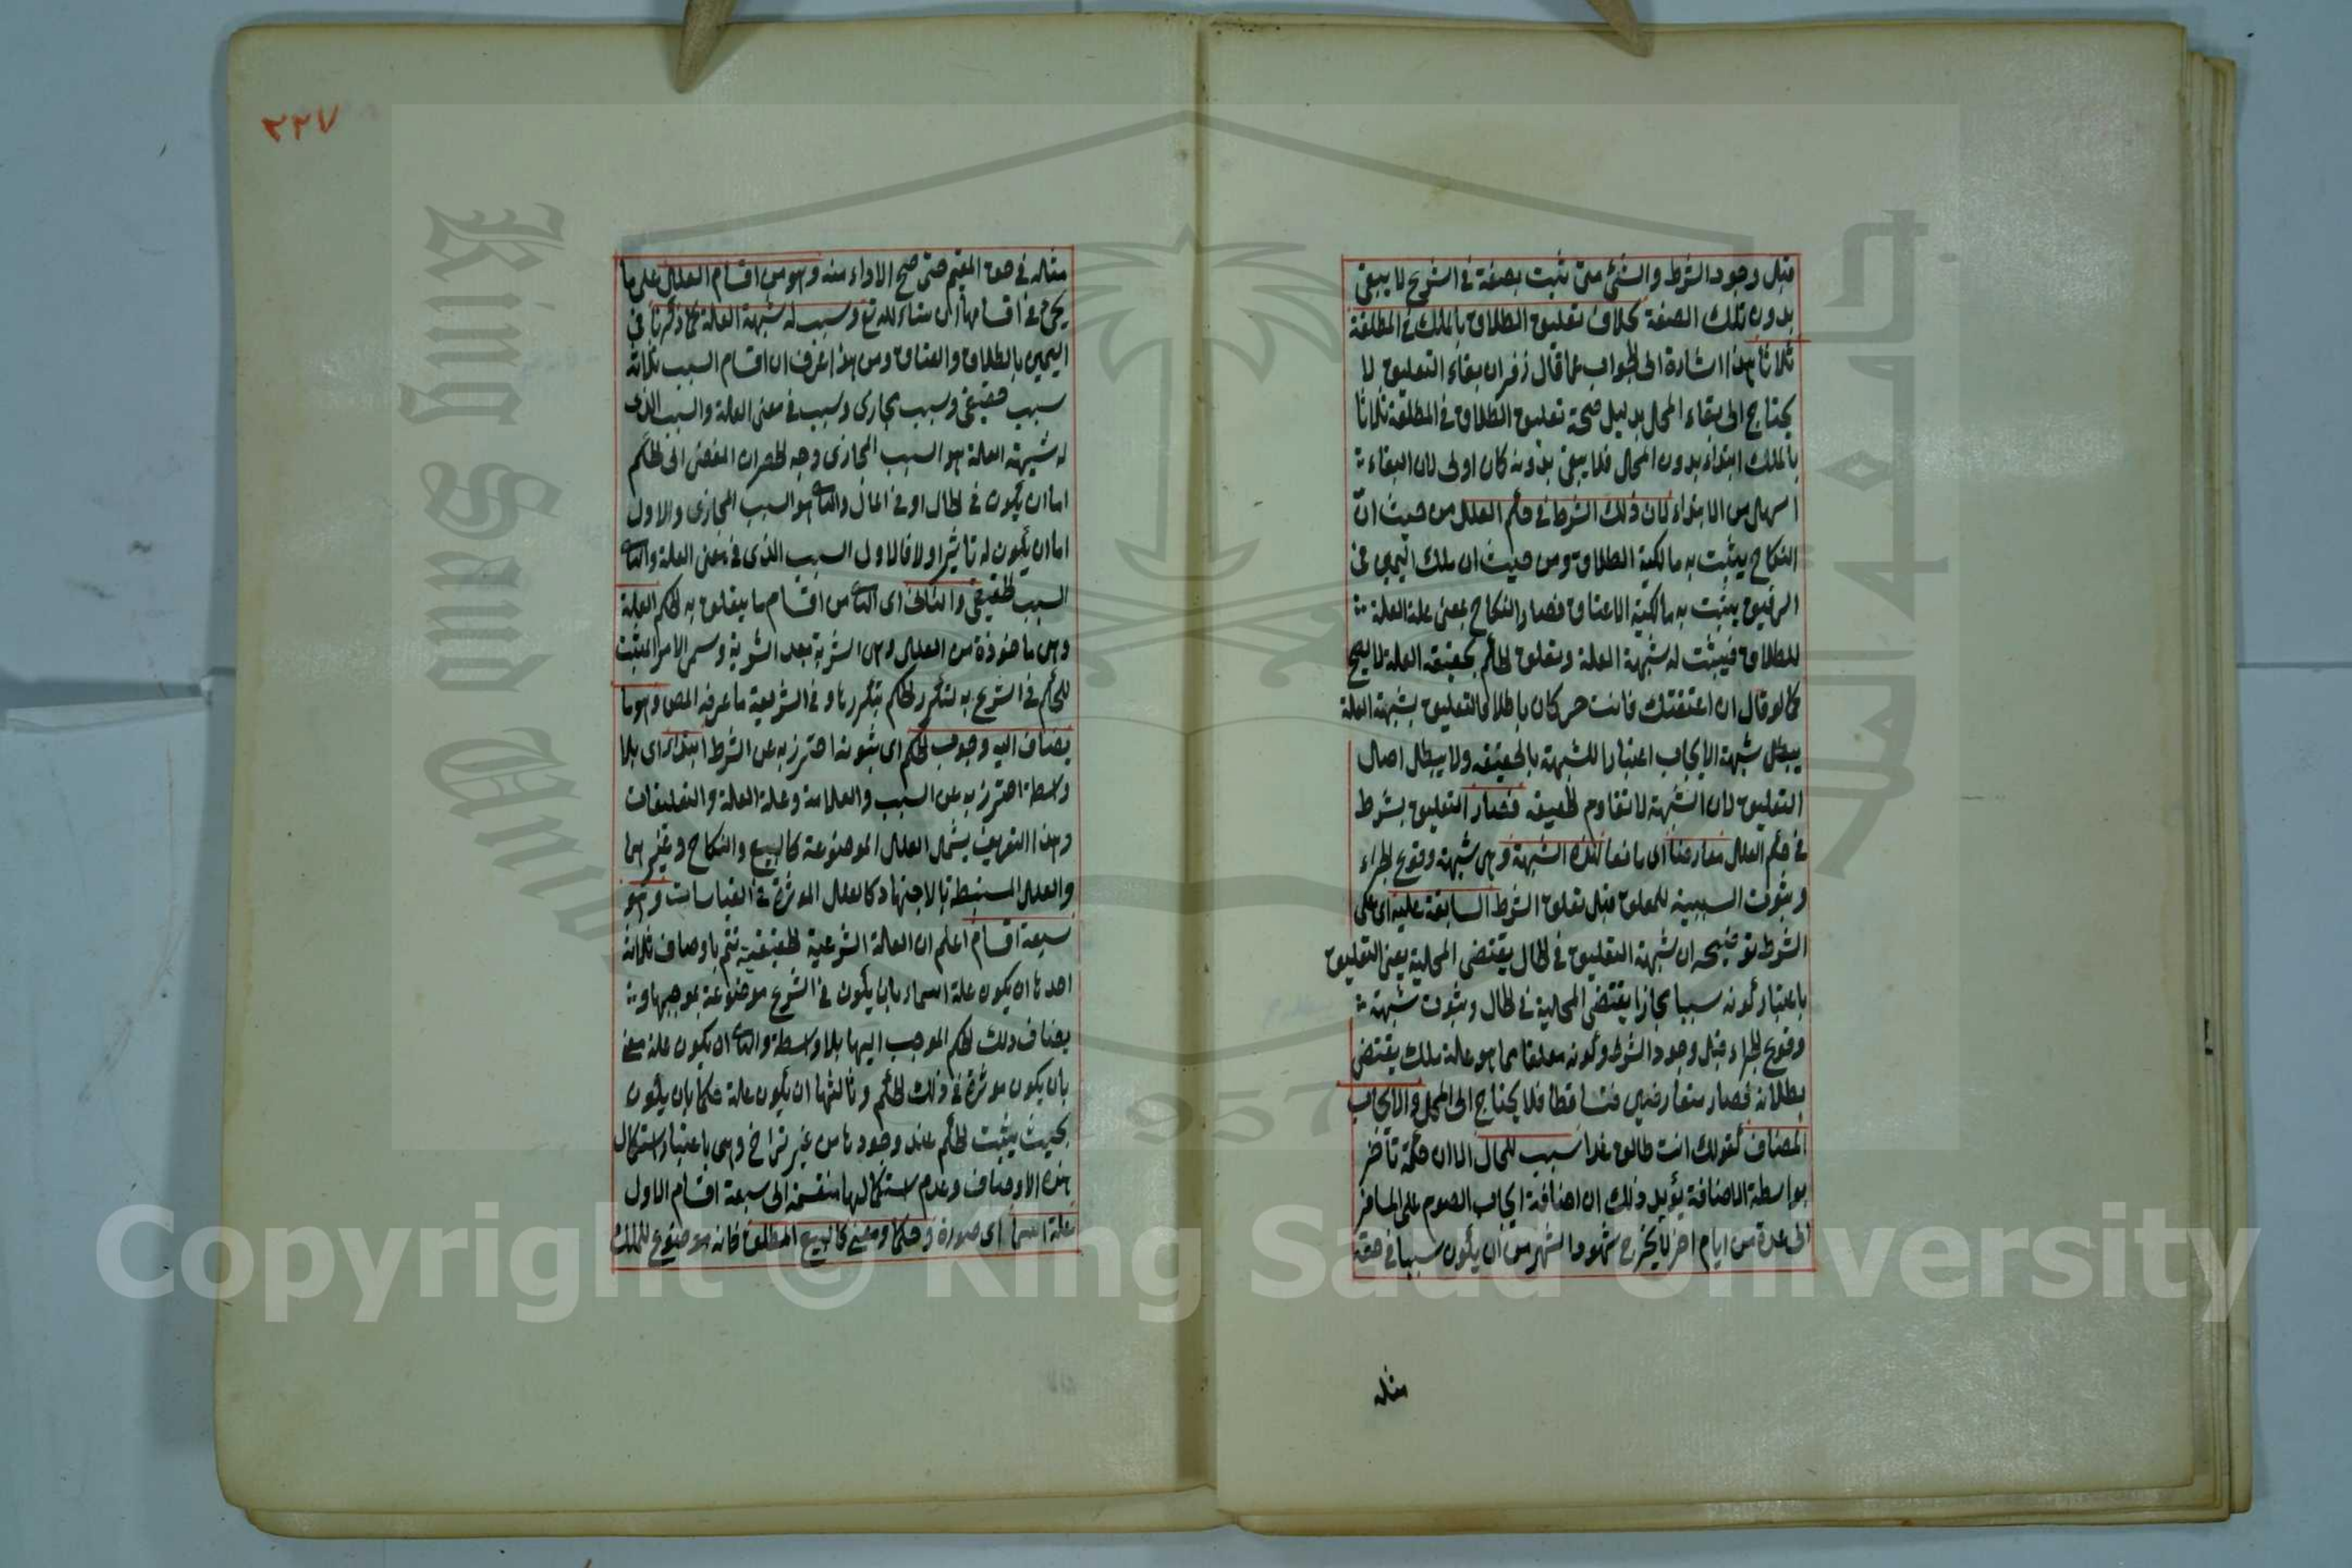 قبل وجود الشرط والشئ متى ثبت بصفة في الشرع لا يبقى
بدون تلك الصفة بخلاف تعليق الطلاق بالملك في المطلقة
ثلاثا هذا اشارة الى الجواب عما قال زفر ان بقاء التعليق لا
يحتاج الى بقاء المحل بدليل صحة تعليق الطلاق في المطلقة ثلاثا
بالملك ابتداء بدون المحل فلا يبقى بدونه كان اولى لان البقاء
اسهل من الابتداء لان ذلك الشرط في حكم العلل من حيث ان
النكاح يثبت به مالكية الطلاق ومن حيث ان ملك اليمين في
الرقيق يثبت به مالكية الاعتاق فصار النكاح بمعنى علة العلة
للطلاق فيثبت له شبهة العلة وتعلق الحكم بحقيقة العلة لا يصح
كما لو قال ان اعتقتك فانت حر كان باطلا فالتعليق بشبهة العلة
يبطل شبهة الايجاب اعتبارا للشبهة بالحقيقه ولا يبطل اصل
التعليق لان الشبهة لا تقاوم الحقيقه فصار التعليق بشرط
في حكم العلل معارضا اى مانعا لهذه الشبهة وهي شبهة وقوع الجزاء
وثبوت السببية للمعلق قبل تعلق الشرط السابقة عليه اى على
الشرط توضيحه ان شبهة التعليق في الحال يقتضى المحلية يعني التعليق
باعتبار كونه سببا مجازا يقتضى المحلية في الحال وثبوت شبهة
وقوع الجزاء قبل وجود الشرط وكونه معلقا بما هو علة ملك يقتضى
بطلانه فصار متعارضين فتساقطا فلا يحتاج الى المحل والايجاب
المضاف كقولك انت طالق غدا سبب للحال الا ان حكمه تأخر
بواسطة الاضافة يؤيد ذلك ان اضافة ايجاب الصوم على المسافر
الى عدة من ايام اخر لا يخرج شهود الشهر من ان يكون سببا في حقه
مثله
٢٢٧
مثاله في حق المقيم حتى صح الاداء منه وهو من اقسام العلل على ما
يجئ في اقسامها ان شاء الله تع وسبب له شبهة العلة كما ذكرنا في
اليمين بالطلاق والعتاق ومن هذا عرف ان اقسام السبب ثلاثة
سبب حقيقي وسبب مجازى وسبب في معنى العلة والسبب الذى
له شبهة العلة هو السبب المجازى وجه الحصر ان المفضى الى الحكم
اما ان يكون في الحال او في المآل والثانى هو السبب المجازى والاول
اما ان يكون له تاثير اولا فالاول السبب الذى في معنى العلة والثانى
السبب الحقيقي والثانى اى الثانى من اقسام ما يتعلق به الحكم العلة
وهى ماخوذة من العلل وهى الشربة بعد الشربة وسمى الامر المثبت
للحكم في الشرع به لتكرر الحكم بتكررها و في الشريعة ما عرفه المص وهو ما
يضاف اليه وجوب الحكم اى ثبوته احترز به عن الشرط ابتداء اى بلا
واسطة احترز به عن السبب والعلامة وعلة العلة والتعليقات
وهذا التعريف يشمل العلل الموضوعة كالبيع والنكاح وغيرهما
والعلل المستنبطة بالاجتهاد كالعلل المؤثرة في القياسات وهو
سبعة اقسام اعلم ان العلة الشرعية الحقيقية تتم باوصاف ثلاثة
احدها ان يكون علة اسماء بان يكون في الشرع موضوعة بموجبها و
يضاف ذلك الحكم الموجب اليها بلا واسطة والثانى ان يكون علة معنى
بان يكون مؤثرة في ذلك الحكم وثالثها ان يكون علة حكما بان يكون
بحيث يثبت الحكم عند وجودها من غير تراخ وهى باعتبار استكمال
هذه الاوصاف وعدم استكمالها منقسمة الى سبعة اقسام الاول
علة اسما اى صورة وحكما ومعنى كالبيع المطلق فانه موضوع للملك
King Saud University
1957
Copyright © King Saud University